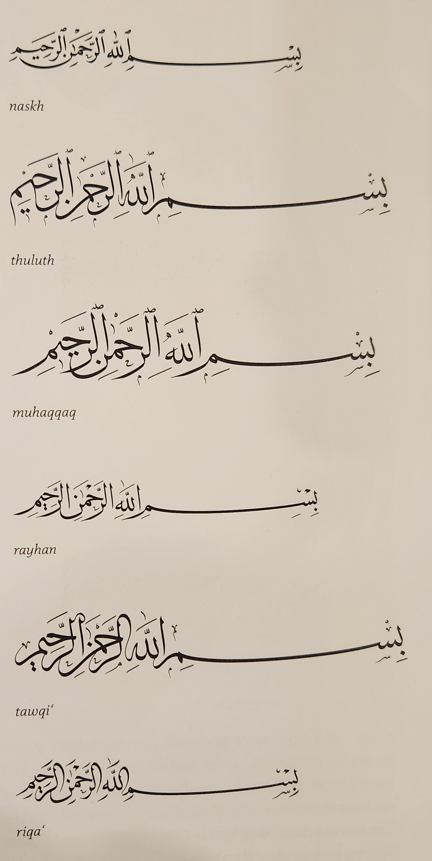 بِسْمِ اللّٰهِ الرَّحْمٰنِ الرَّحِيمِ
naskh
بِسْمِ اللّٰهِ الرَّحْمٰنِ الرَّحِيمِ
thuluth
بِسْمِ اللّٰهِ الرَّحْمٰنِ الرَّحِيمِ
muhaqqaq
بِسْمِ اللّٰهِ الرَّحْمٰنِ الرَّحِيمِ
rayhan
بِسْمِ اللّٰهِ الرَّحْمٰنِ الرَّحِيمِ
tawqi‘
بِسْمِ اللّٰهِ الرَّحْمٰنِ الرَّحِيمِ
riqa‘